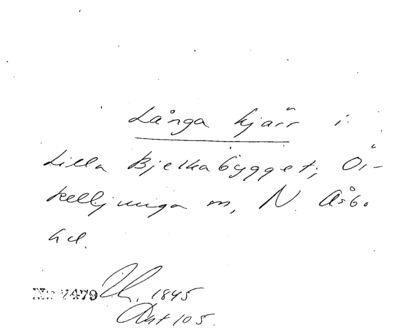 Långa kjärr i
Lilla Bjelkabygget, Ö-
kelljunga m, N. Åsbo
hd.
No 7479 1845
Akt 105.